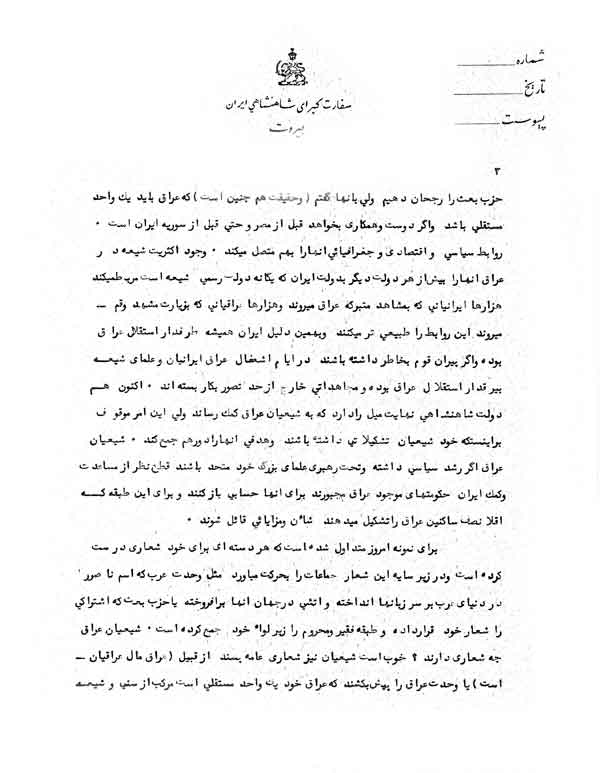 شماره
تاریخ
پیوست
سفارت کبرای شاهنشاهی ایران
بیروت
۳
حزب بعث را رجحان دهیم ولی بانها گفتم ( وحقیقت هم چنین است ) که عراق باید یك واحد
مستقلی باشد واگر دوست وهمکاری بخواهد قبل از مصر و حتی قبل از سوریه ایران است ۰
روابط سیاسی و اقتصادی و جغرافیائی انها را بهم متصل میکند ۰ وجود اکثریت شیعه در
عراق انها را بیش از هر دولت دیگر بدولت ایران که یگانه دولت رسمی شیعه است مربوط میکند
هزارها ایرانیانی که بمشاهد متبرکه عراق میروند وهزارها عراقیانی که بزیارت مشهد وقم ــ
میروند این روابط را طبیعی تر میکنند وبهمین دلیل ایران همیشه طرفدار استقلال عراق
بوده واگر پیران قوم بخاطر داشته باشند در ایام اشغال عراق ایرانیان و علمای شیعه
بیرقدار استقلال عراق بوده و مجاهداتی خارج از حد تصور بکار بسته اند ۰ اکنون هم
دولت شاهنشاهی نهایت میل را دارد که به شیعیان عراق کمك رساند ولی این امر موقوف
براینستکه خود شیعیان تشکیلاتی داشته باشند وهدفی انها را دور هم جمع کند ۰ شیعیان
عراق اگر رشد سیاسی داشته وتحت رهبری علمای بزرگ خود متحد باشند قطع نظر از مساعدت
وکمك ایران حکومتهای موجود عراق مجبورند برای انها حسابی باز کنند و برای این طبقه که
اقلا نصف ساکنین عراق را تشکیل میدهند شأن ومزایائی قائل شوند ۰
برای نمونه امروز متداول شده است که هر دسته ای برای خود شعاری درست
کرده است ودر زیر سایه این شعار جماعات را بحرکت میاورد مثل وحدت عرب که اسم ناصر را
در دنیای عرب بر سر زبانها انداخته و اتشی در جهان انها برافروخته یا حزب بعث که اشتراکی
را شعار خود قرار داده و طبقه فقیر ومحروم را زیر لواء خود جمع کرده است ۰ شیعیان عراق
چه شعاری دارند ؟ خوب است شیعیان نیز شعاری عامه پسند از قبیل ( عراق مال عراقیان ــ
است ) یا وحدت عراق را پیش بکشند که عراق خود یك واحد مستقلی است مرکب از سنی و شیعه